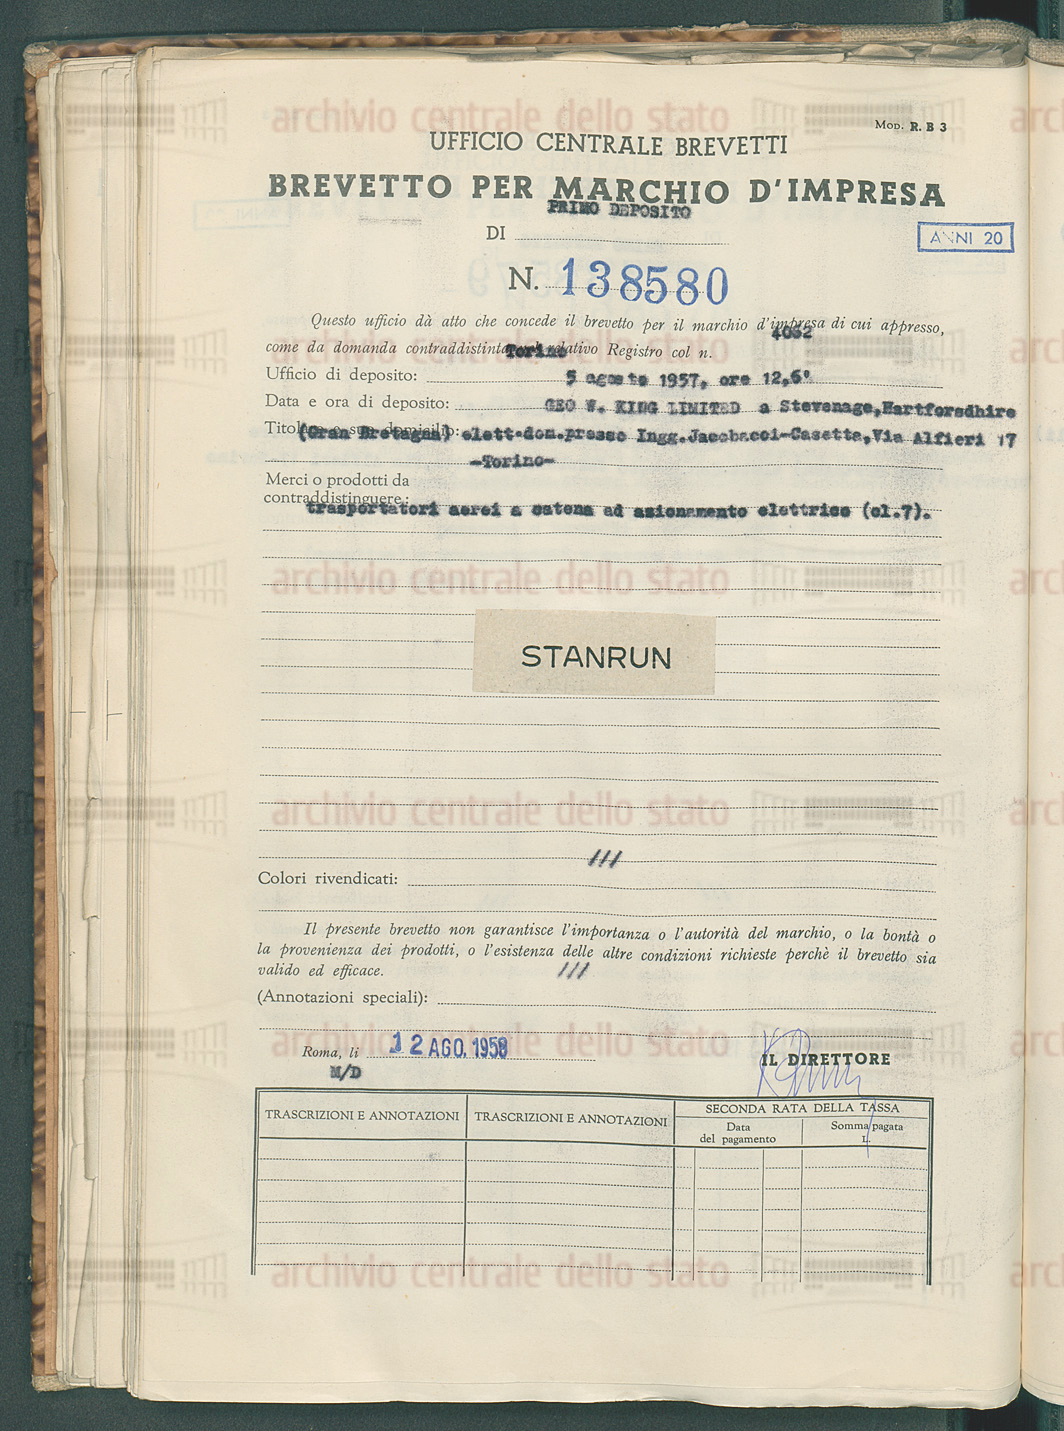 Mod. R. B 3
UFFICIO CENTRALE BREVETTI
BREVETTO PER MARCHIO D'IMPRESA
PRIMO DEPOSITO
DI
ANNI 20
N. 138580
Questo ufficio dà atto che concede il brevetto per il marchio d'impresa di cui appresso,
4032
come da domanda contraddistinta relativo Registro col n.
Torino
Ufficio di deposito:
5 agosto 1957, ore 12,6'
Data e ora di deposito:
GEO W. KING LIMITED a Stevenage,Hartforsdhire
Titolare e suo domicilio:
(Gran Bretagna) elett.dom.presso Ingg.Jacobacci-Casetta,Via Alfieri 17
-Torino-
Merci o prodotti da
contraddistinguere:
trasportatori aerei a catena ad azionamento elettrico (cl.7).
STANRUN
///
Colori rivendicati:
Il presente brevetto non garantisce l'importanza o l'autorità del marchio, o la bontà o
la provenienza dei prodotti, o l'esistenza delle altre condizioni richieste perchè il brevetto sia
valido ed efficace.
///
(Annotazioni speciali):
Roma, li 12 AGO. 1958
M/D
IL DIRETTORE
TRASCRIZIONI E ANNOTAZIONI
TRASCRIZIONI E ANNOTAZIONI
SECONDA RATA DELLA TASSA
Data
del pagamento
Somma pagata
L.
archivio centrale dello stato
archivio centrale dello stato
archivio centrale dello stato
archivio centrale dello stato
archivio centrale dello stato